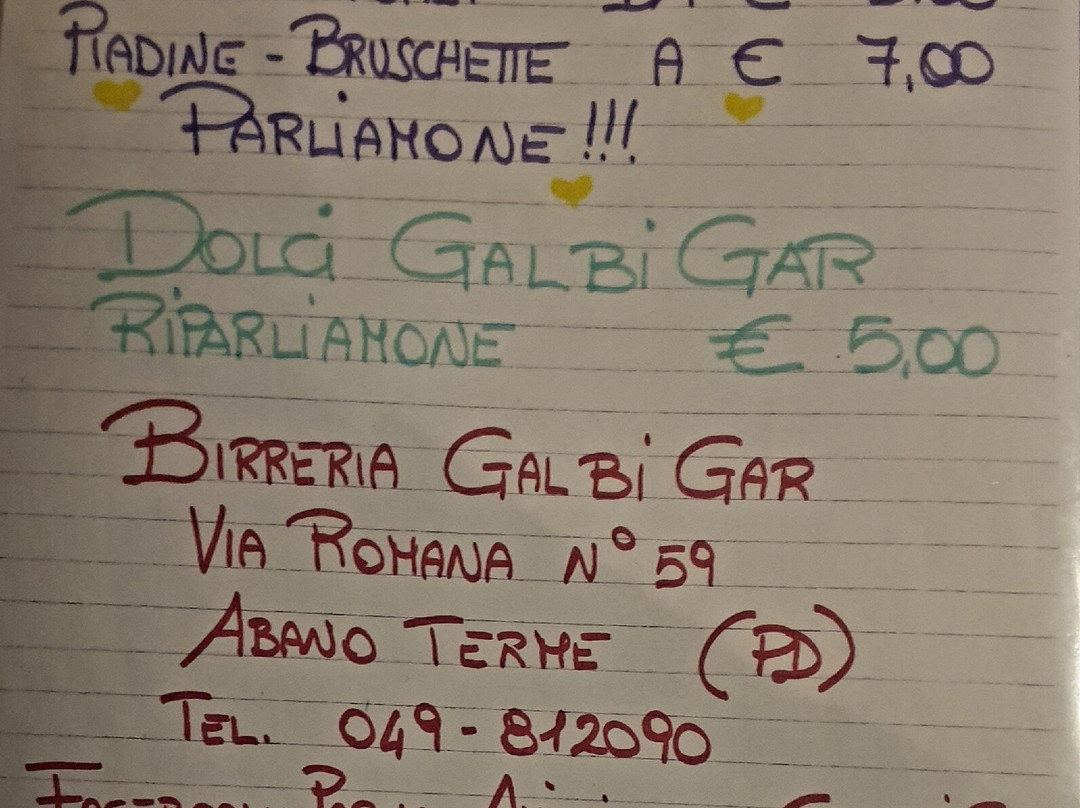 PIADINE - BRUSCHETTE A € 7,00
PARLIAMONE!!!
DOLCI GALBi GAR
RiPARLiAMONE € 5,00
BIRRERIA GALBi GAR
VIA ROMANA N° 59
ABANO TERME (PD)
TEL. 049-812090